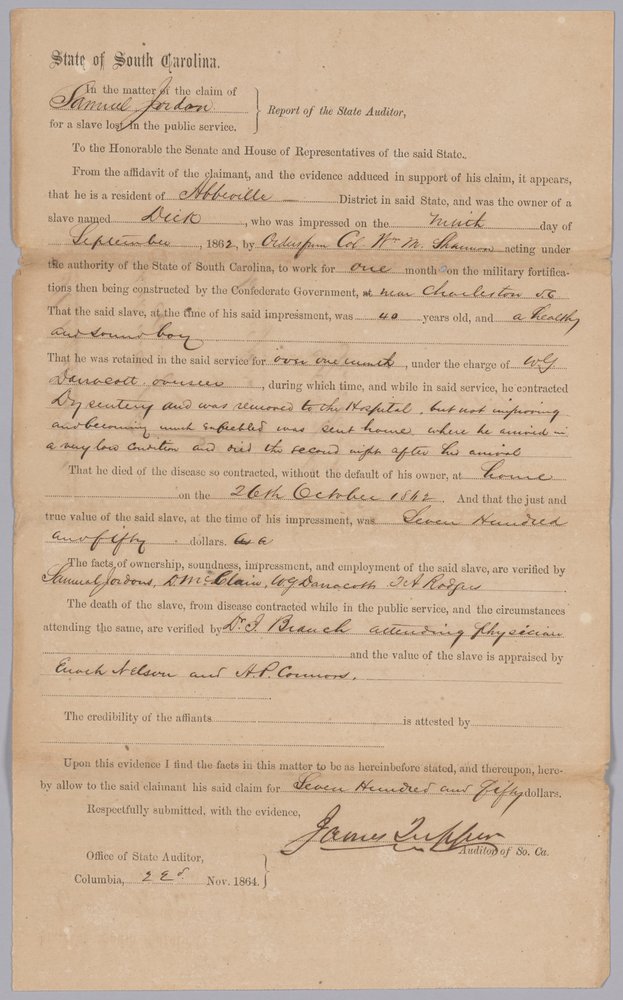 State of South Carolina.
In the matter of the claim of
Samuel Jordan
for a slave lost in the public service.
Report of the State Auditor,
To the Honorable the Senate and House of Representatives of the said State.
From the affidavit of the claimant, and the evidence adduced in support of his claim, it appears,
that he is a resident of Abbeville District in said State, and was the owner of a
slave named Dick, who was impressed on the ninth day of
September, 1862, by Orders from Col Wm M. Shannon acting under
the authority of the State of South Carolina, to work for one month on the military fortifica-
tions then being constructed by the Confederate Government, at near Charleston SC
That the said slave, at the time of his said impressment, was 40 years old, and a healthy
and sound boy
That he was retained in the said service for over one month, under the charge of WG
overseer, during which time, and while in said service, he contracted
Dysentery and was removed to the Hospital, but not improving
and becoming much enfeebled was sent home where he arrived in
a very low condition and died the second night after his arrival
That he died of the disease so contracted, without the default of his owner, at home
on the 26th October 1862. And that the just and
true value of the said slave, at the time of his impressment, was Seven Hundred
and fifty dollars.
The facts of ownership, soundness, impressment, and employment of the said slave, are verified by
Samuel Jordons, D. McClain, WG J A Rodgers
The death of the slave, from disease contracted while in the public service, and the circumstances
attending the same, are verified by Dr. J. Branch attending physician
and the value of the slave is appraised by
Enoch Nelson and A.P. Connors.
The credibility of the affiants is attested by
Upon this evidence I find the facts in this matter to be as hereinbefore stated, and thereupon, here-
by allow to the said claimant his said claim for Seven Hundred and fifty dollars.
Respectfully submitted, with the evidence,
James Tupper
Auditor of So. Ca.
Office of State Auditor,
Columbia, 22d. Nov. 1864.